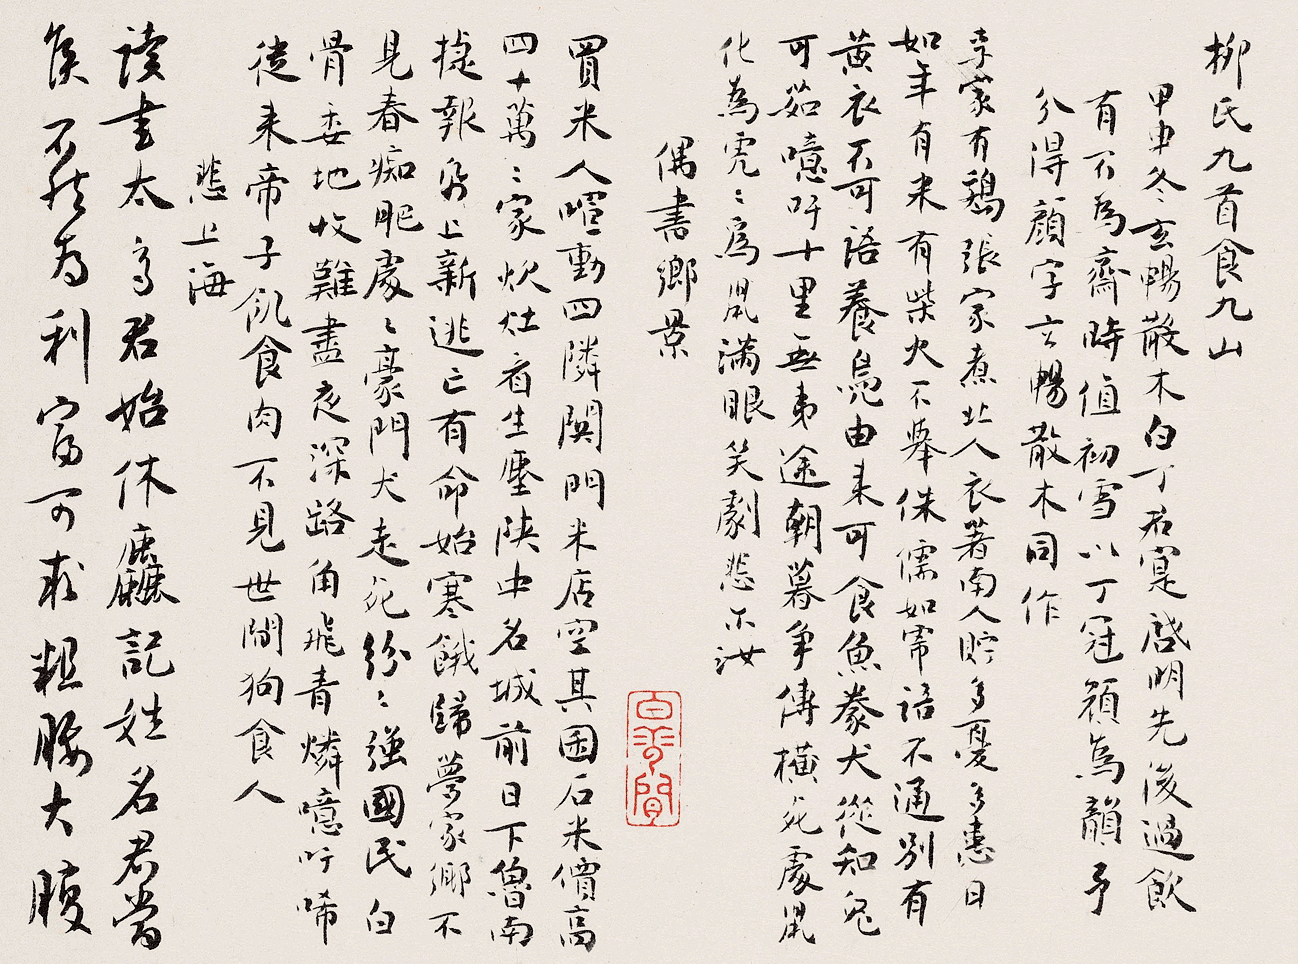 柳氏九首食九山
甲申冬玄暢散木白丁若寔啟明先後過飲
有不為齋時值初雪以丁冠頟為韻予
分得顏字玄暢散木同作
李家有鵝張家煮北人衣著南人貯多憂多恚日
如年有米有柴火不舉侏儒如常語不通別有
黃衣不可語養鳥由來可食魚豢犬從知
可茹噫吁十里無夷途朝暮爭傳橫死處鼠
化為虎虎為鼠滿眼笑劇悲示汝
偶書鄉景
買米人喧動四隣関門米店空其囷石米價高
四十萬萬家炊灶看生塵陝中名城前日下魯南
捷報翁上新逃亡有命始寒餓歸夢家鄉不
見春痴肥處處豪門犬走死紛紛強國民白
骨委地收難盡夜深路角飛青燐噫吁唏
從來帝子飢食肉不見世間狗食人
悲上海
讀書太高君始休麤記姓名君當
侯不能為利富可求粗腰大腹
白雲間